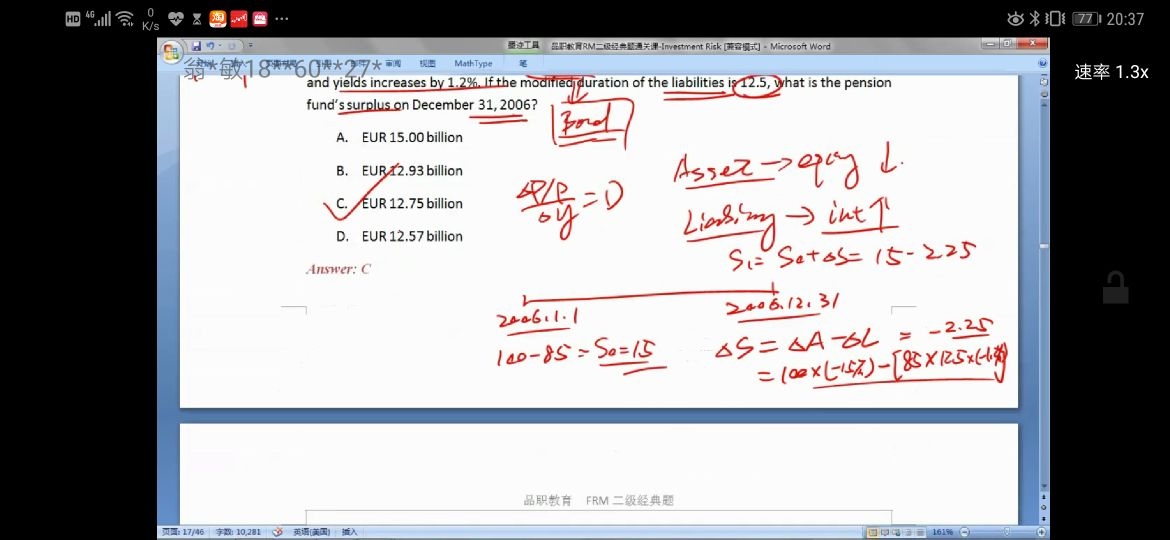 HD 4G 0 K/s ... 77 20:37
墨迹工具 品职教育RM二级经典题通关课-Investment Risk [兼容模式] - Microsoft Word
审阅 视图 MathType 笔
翁*敏18**60**27*
速率 1.3x
and yields increases by 1.2%. If the modified duration of the liabilities is 12.5, what is the pension
fund's surplus on December 31, 2006?
Bond
A. EUR 15.00 billion
B. EUR 12.93 billion
C. EUR 12.75 billion
D. EUR 12.57 billion
Answer: C
ΔP/P
ΔY = D
Asset → equity ↓.
Liability → int ↑
S1 = S0 + ΔS = 15 - 2.25
2006.1.1
2006.12.31
100-85 = S0 = 15
ΔS = ΔA - ΔL = -2.25
= 100×(-15%) - [85×12.5×(-1.2%)]
品职教育 FRM 二级经典题
页面: 17/46 字数: 10,281 英语(美国) 插入 161%